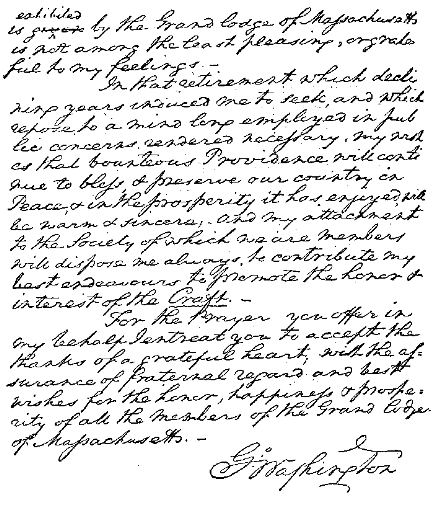 exhibited
is given by the Grand lodge of Massachusetts
is not among the least pleasing, or grate
ful to my feelings. –
In that retirement which decli
ning years induced me to seek, and which
repose, to a mind long employed in pub
lic concerns, rendered necessary, my wish
es that bounteous Providence will conti
nue to bless & preserve our country in
Peace, & in the prosperity it has enjoyed, will
be warm & sincere; – and my attachment
to the Society of which we are members
will dispose me always, to contribute my
best endeavours to promote the honor &
interest of the Craft. –
For the Prayer you offer in
my behalf I entreat you to accept the
thanks of a grateful heart; with the as-
surance of fraternal regard and best
wishes for the honor, happiness & prospe-
rity of all the members of the Grand Lodge
of Massachusetts. –
G:Washington